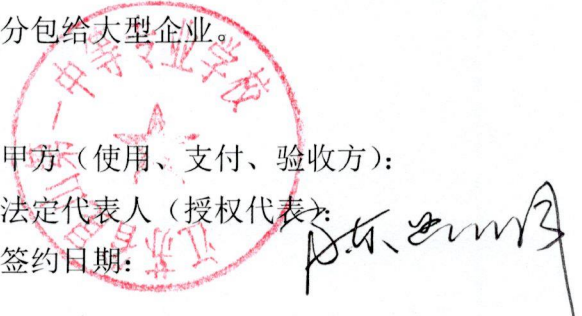 分包给大型企业。
江苏省昆山第一中等专业学校
甲方（使用、支付、验收方）：
法定代表人（授权代表）：
签约日期：